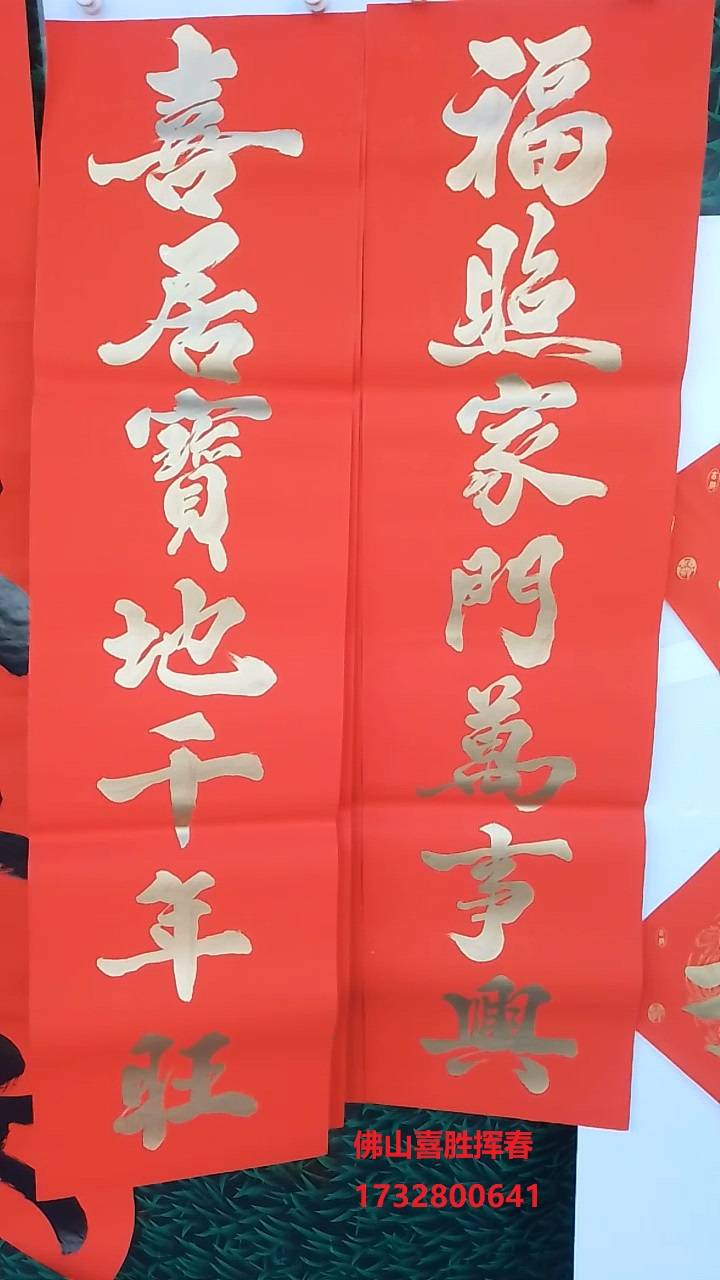 福照家門萬事興
喜居寶地千年旺
佛山喜胜挥春
1732800641